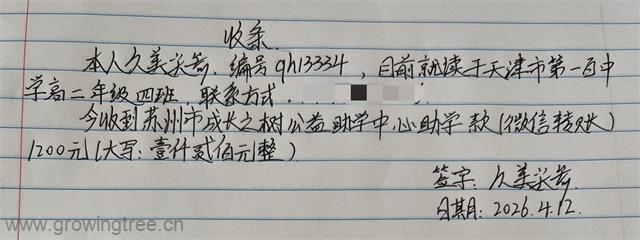 收条
本人久美采芳，编号qh13334，目前就读于天津市第一百中
学高二年级四班，联系方式
今收到苏州市成长之树公益助学中心助学款（微信转账）
1200元（大写：壹仟贰佰元整）
签字：久美采芳
日期：2026.4.12.
www.growingtree.cn